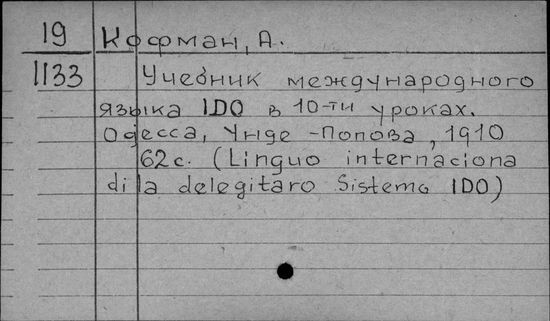 19 Кофман, А.
1133 Учебник международного
языка IDO в 10-ти уроках.
Одесса, Унде-Попова, 1910
62с. (Linguo internaciona
di la delegitaro Sistemo IDO)